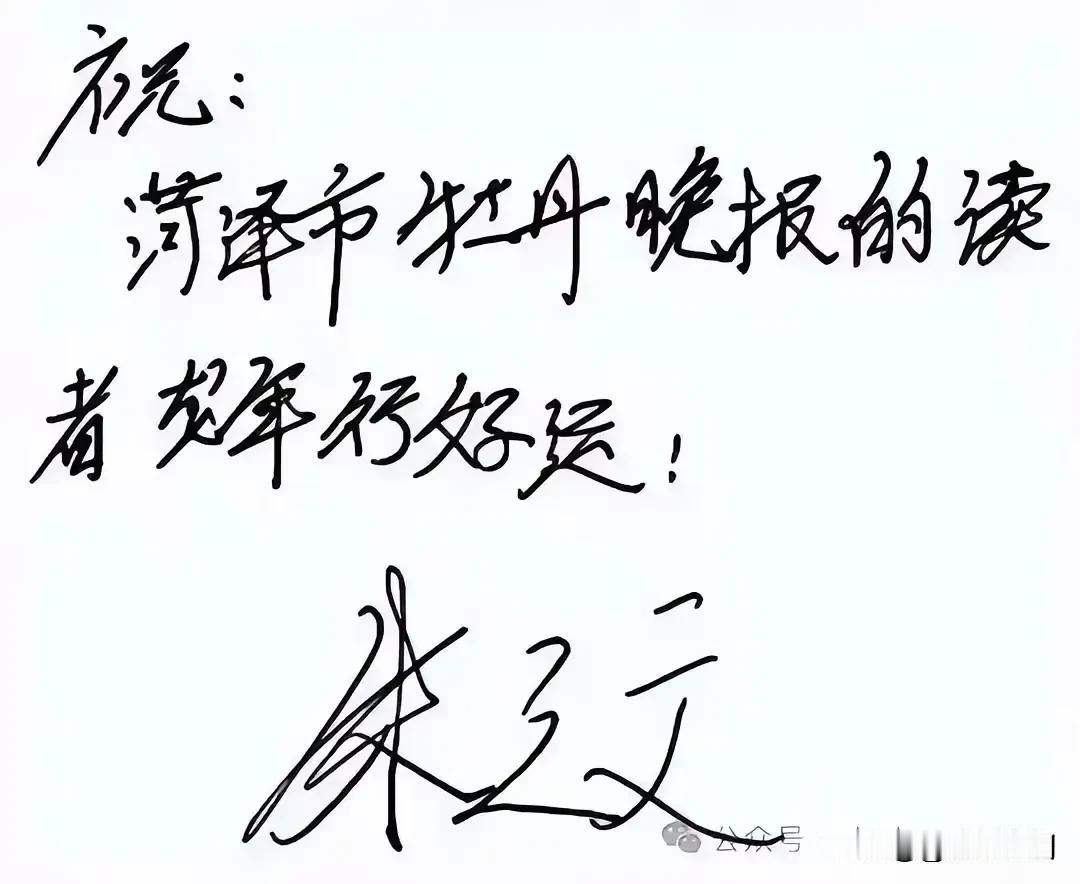 祝：
菏泽市牡丹晚报的读
者龙年行好运！
朱之文
公众号